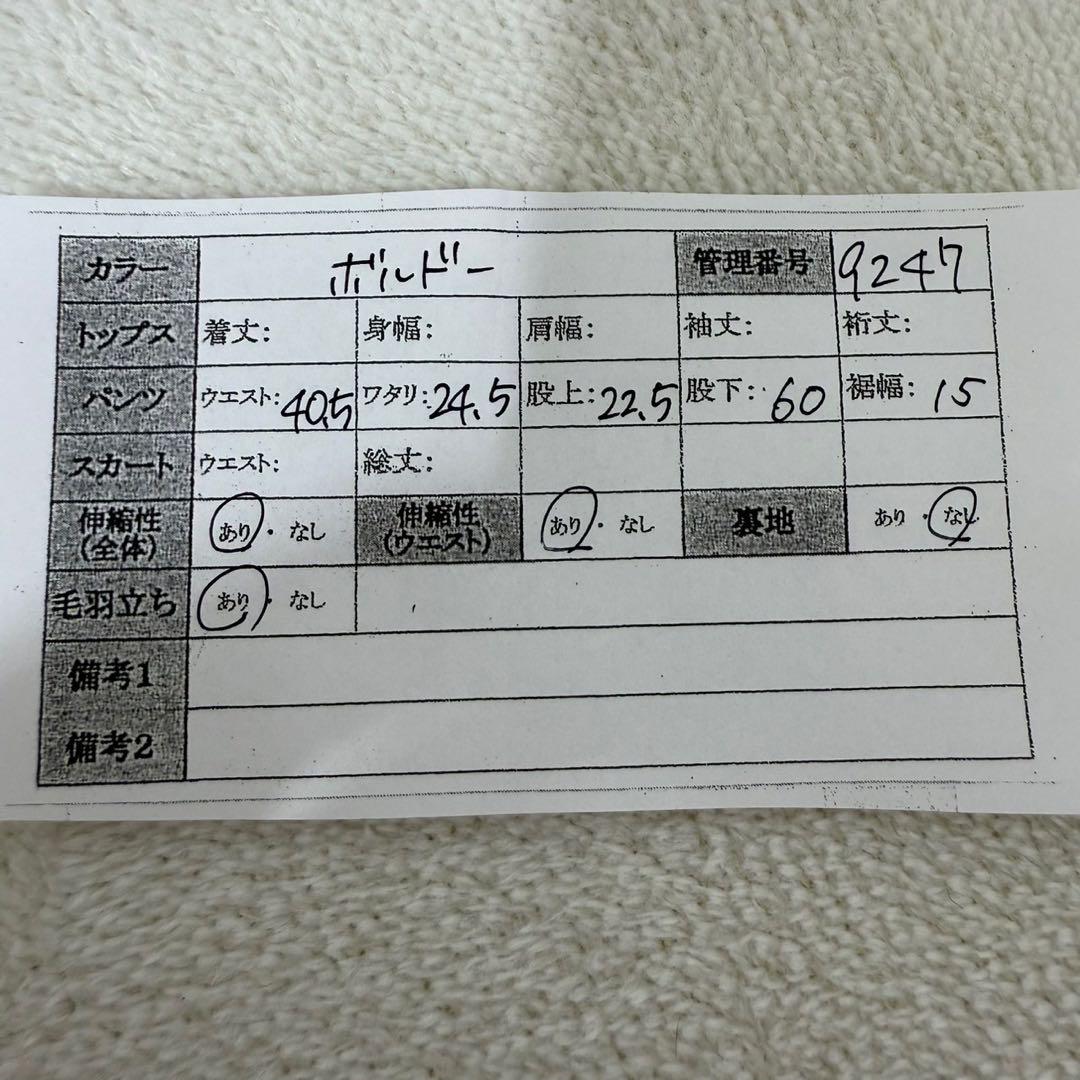 カラー ボルドー 管理番号 9247
トップス 着丈: 身幅: 肩幅: 袖丈: 裄丈:
パンツ ウエスト: 40.5 ワタリ: 24.5 股上: 22.5 股下: 60 裾幅: 15
スカート ウエスト: 総丈:
伸縮性(全体) あり・なし 伸縮性(ウエスト) あり・なし 裏地 あり・なし
毛羽立ち あり・なし
備考1
備考2